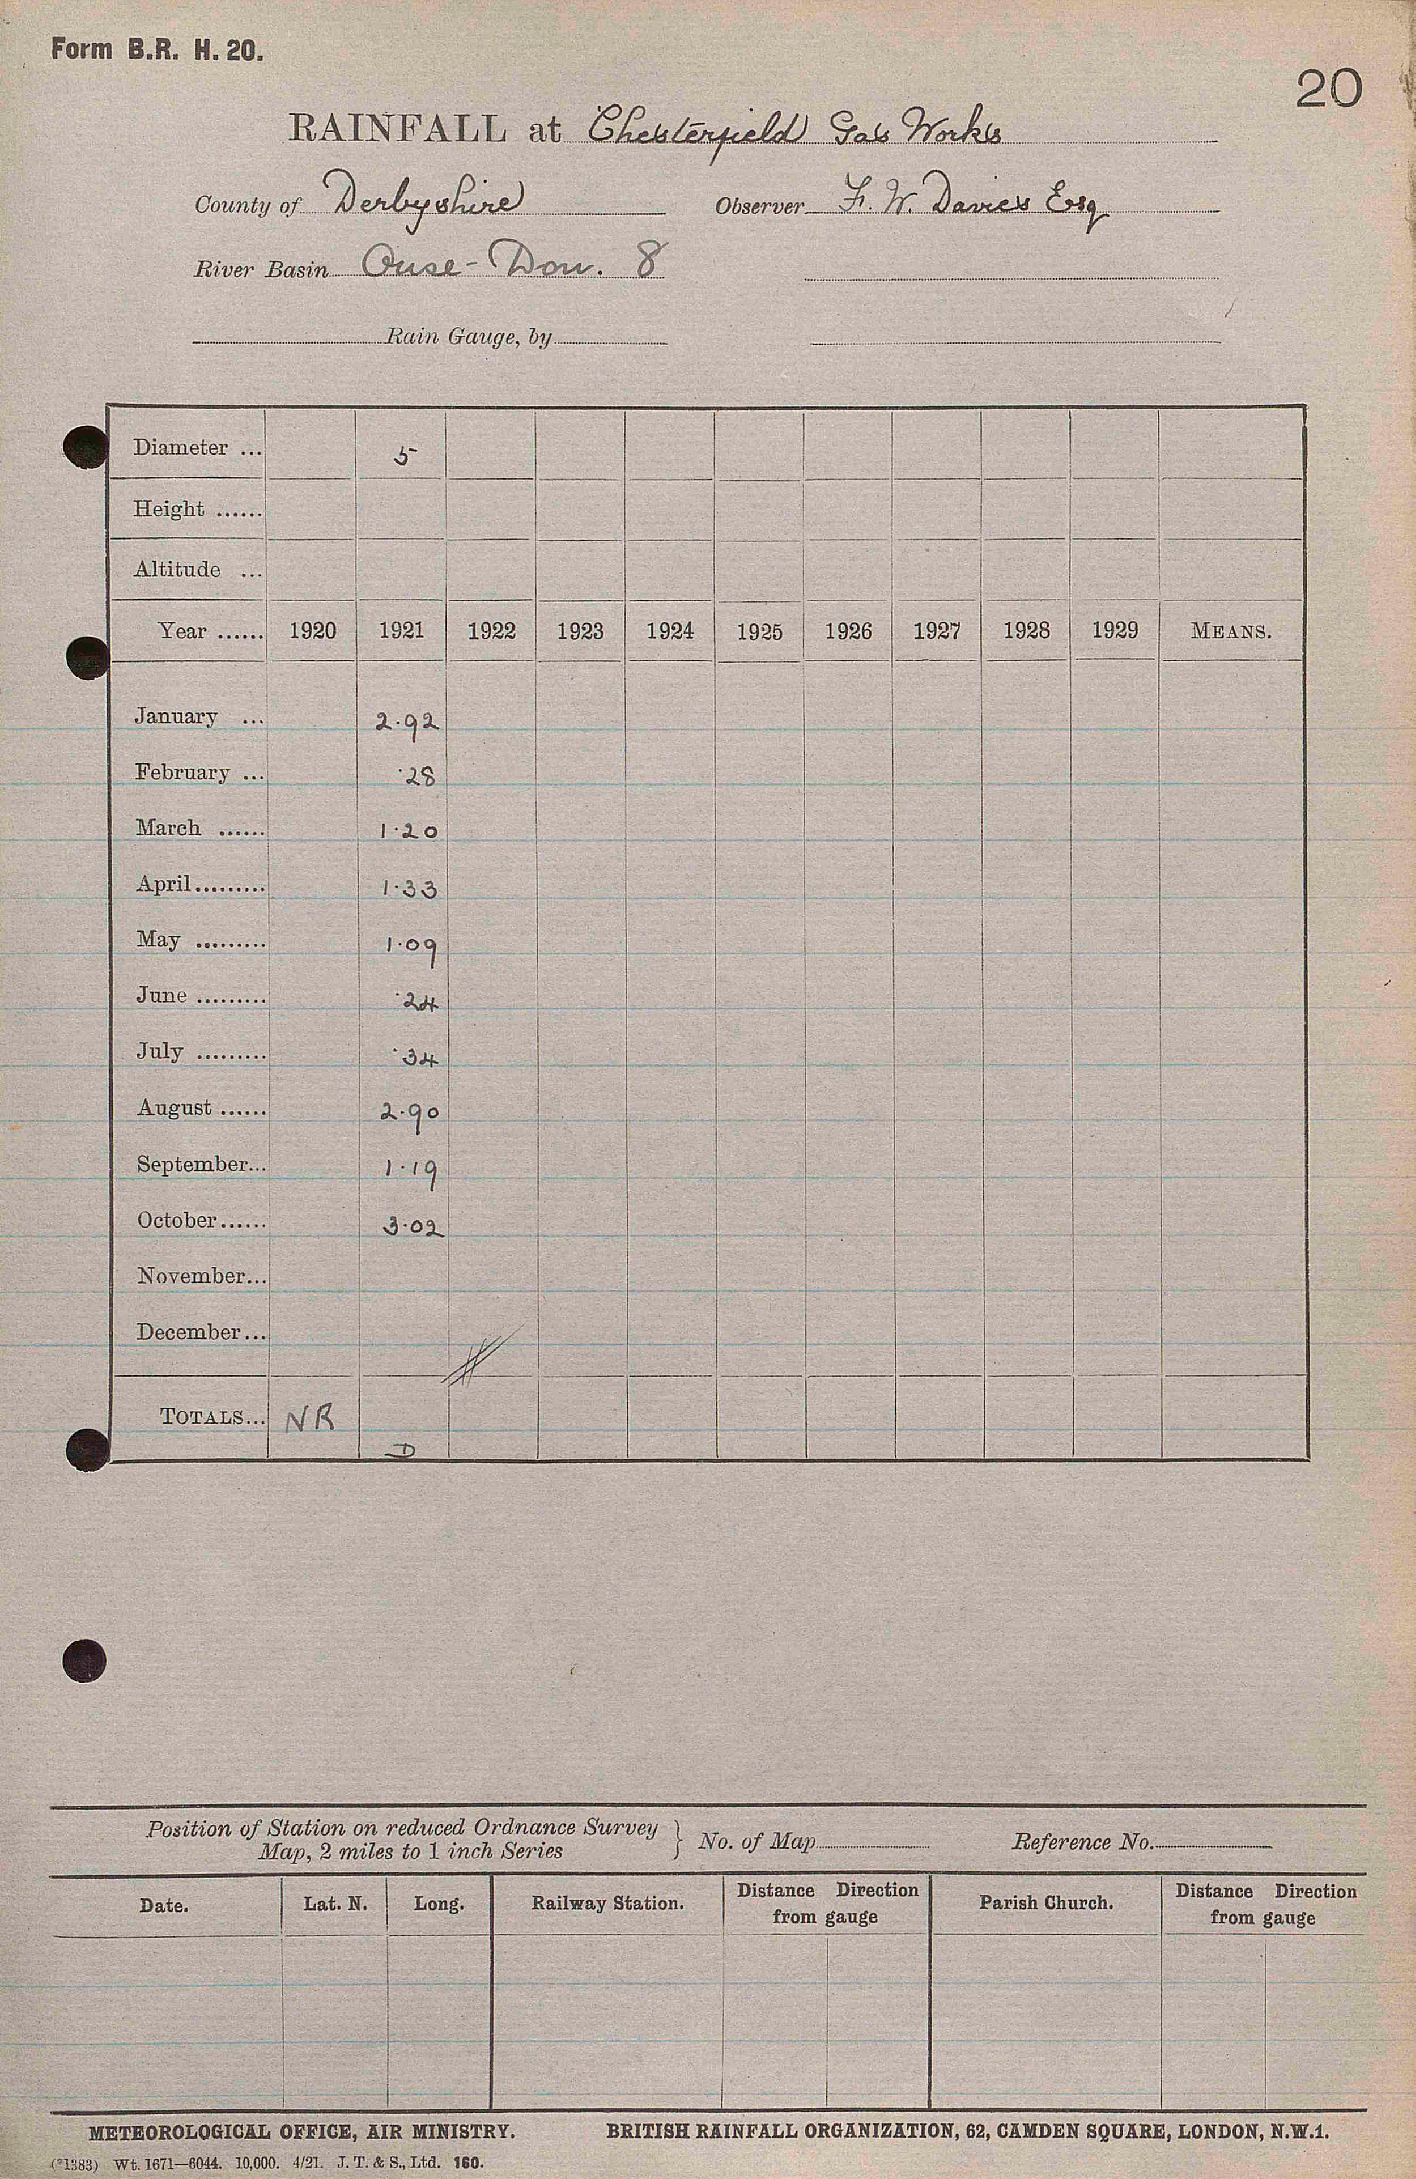 Form B.R. H. 20.
20
RAINFALL at Chesterfield Gas Works
County of Derbyshire Observer F. W. Davies Esq
River Basin Ouse - Don. 8
Rain Gauge, by
Diameter ... 5
Height ......
Altitude ...
Year ...... 1920 1921 1922 1923 1924 1925 1926 1927 1928 1929 MEANS.
January ... 2.92
February ... .28
March ...... 1.20
April......... 1.33
May ......... 1.09
June ......... .24
July ......... .34
August ...... 2.90
September... 1.19
October...... 3.02
November...
December...
TOTALS... NR
D
Position of Station on reduced Ordnance Survey
Map, 2 miles to 1 inch Series } No. of Map Reference No.
Date. Lat. N. Long. Railway Station. Distance Direction from gauge Parish Church. Distance Direction from gauge
METEOROLOGICAL OFFICE, AIR MINISTRY. BRITISH RAINFALL ORGANIZATION, 62, CAMDEN SQUARE, LONDON, N.W.1.
(*1383) Wt. 1671—6044. 10,000. 4/21. J. T. & S., Ltd. 160.